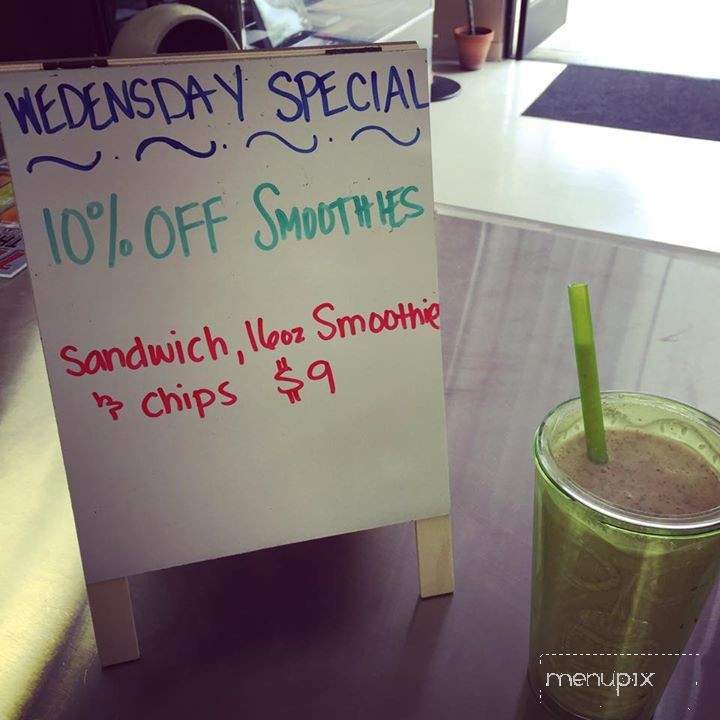 WEDENSDAY SPECIAL
~ · ~ · ~ · ~
10% OFF SMOOTHIES
Sandwich, 16oz Smoothie
& chips $9
menupix